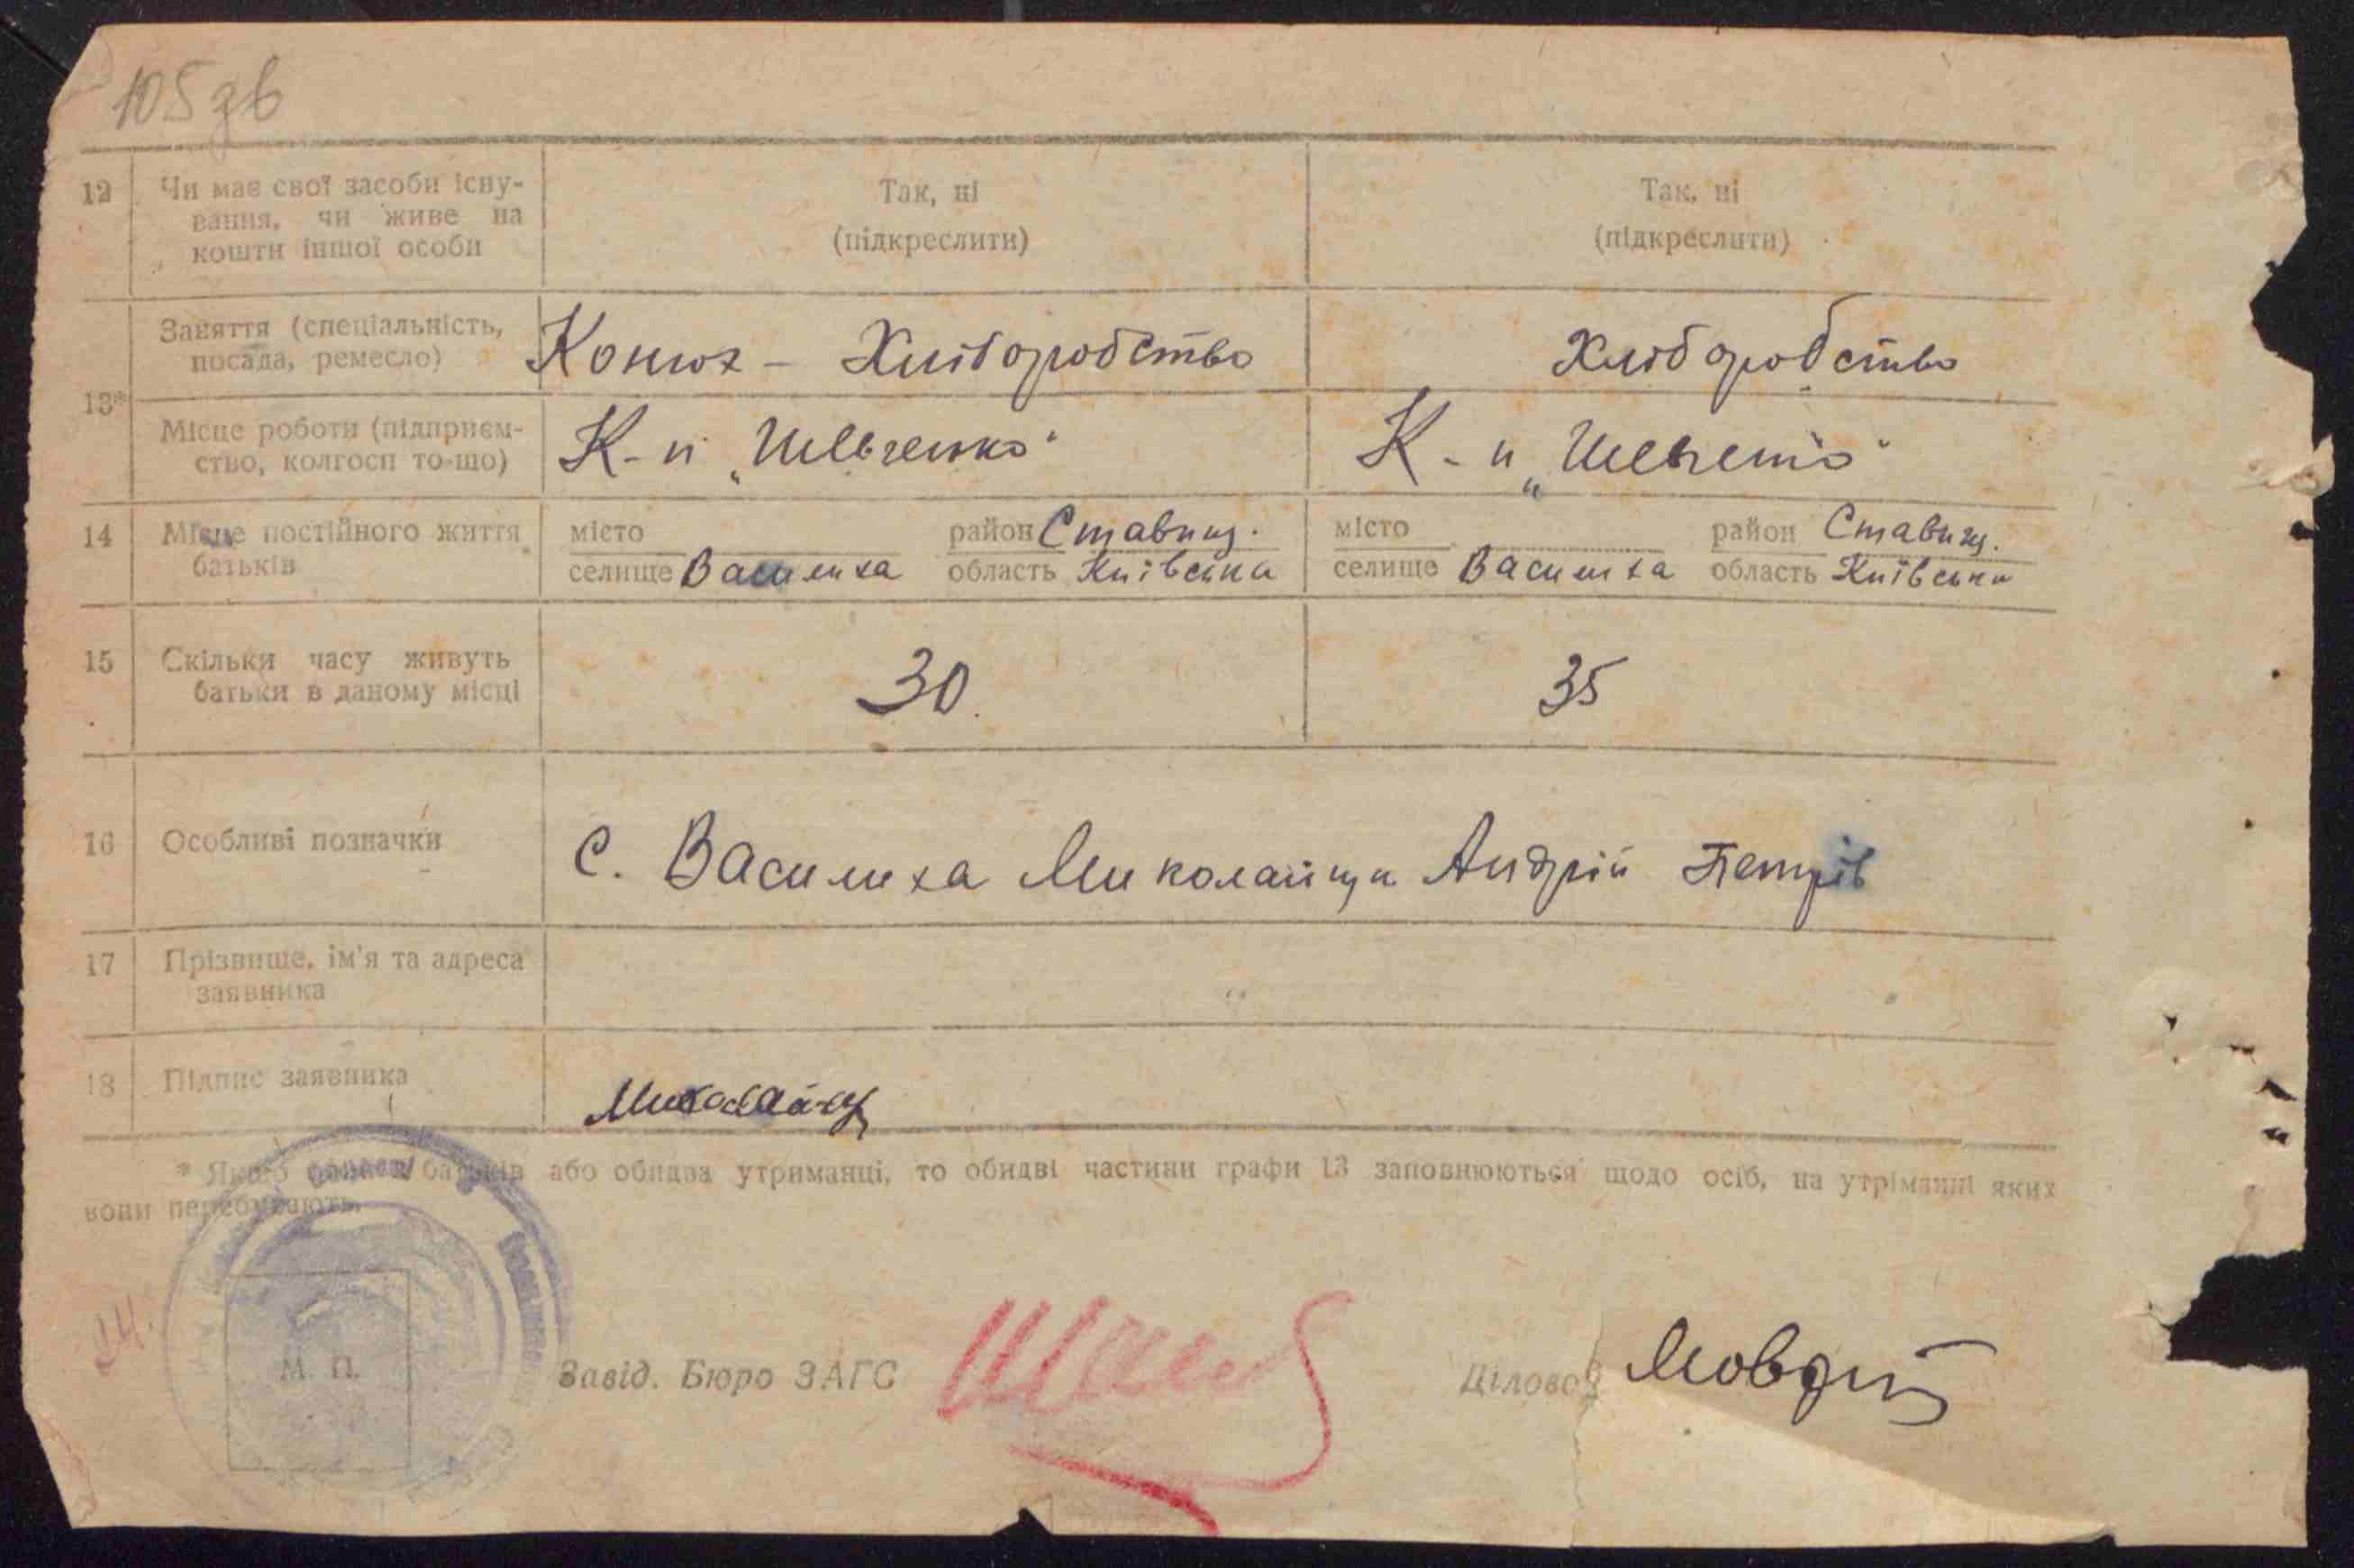 105 зв
12 Чи має свої засоби існу-
вання, чи живе на
кошти іншої особи
Так, ні
(підкреслити)
Так, ні
(підкреслити)
13*
Заняття (спеціальність,
посада, ремесло)
Конюх – Хліборобство
Хліборобство
Місце роботи (підприєм-
ство, колгосп то-що)
К-п „Шевченко"
К-п „Шевченко"
14 Місце постійного життя
батьків
місто район Ставищ.
селище Василиха область Київська
місто район Ставищ.
селище Василиха область Київська
15 Скільки часу живуть
батьки в даному місці
30
35
16 Особливі позначки
С. Василиха Миколайчи Андрій Петрів
17 Прізвище, ім'я та адреса
заявника
18 Підпис заявника
* Якщо батьків або обидва утриманці, то обидві частини графи 13 заповнюються щодо осіб, на утріманні яких
вони перебувають.
М. П.
Завід. Бюро ЗАГС
Діловод